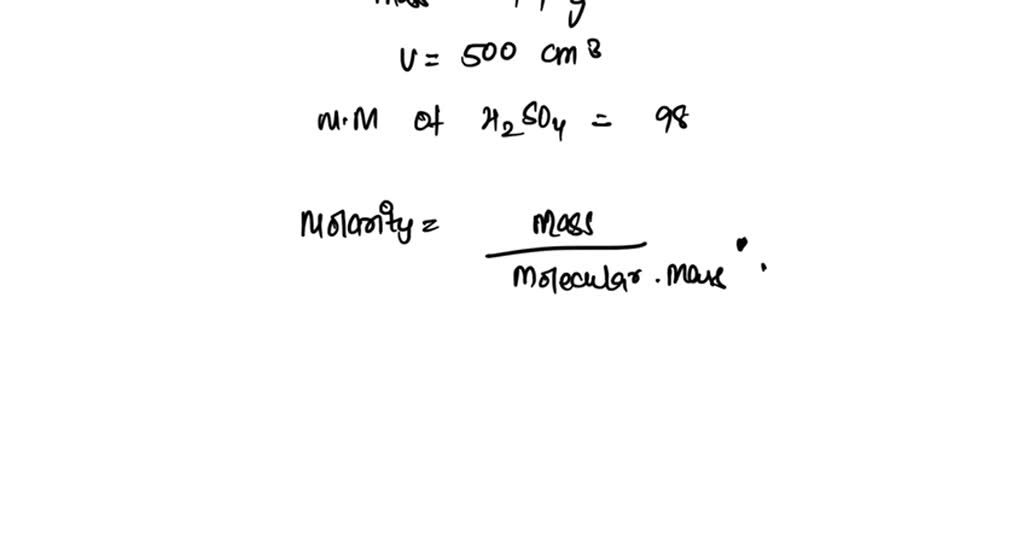 mass
V = 500 cm3
M.M of H2SO4 = 98
Molarity = mass
Molecular . Mass